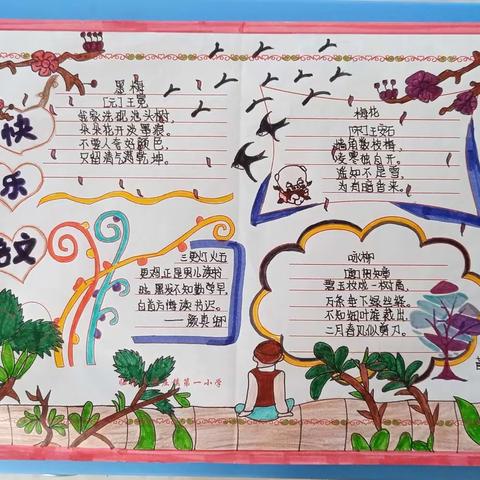 快
乐
语文
墨梅
[元]王冕
我家洗砚池头树,
朵朵花开淡墨痕。
不要人夸好颜色,
只留清气满乾坤。
梅花
[宋]王安石
墙角数枝梅,
凌寒独自开。
遥知不是雪,
为有暗香来。
三更灯火五
更鸡,正是男儿读书
时。黑发不知勤学早,
白首方悔读书迟。
——颜真卿
咏柳
[唐]贺知章
碧玉妆成一树高,
万条垂下绿丝绦。
不知细叶谁裁出,
二月春风似剪刀。
镇第一小学